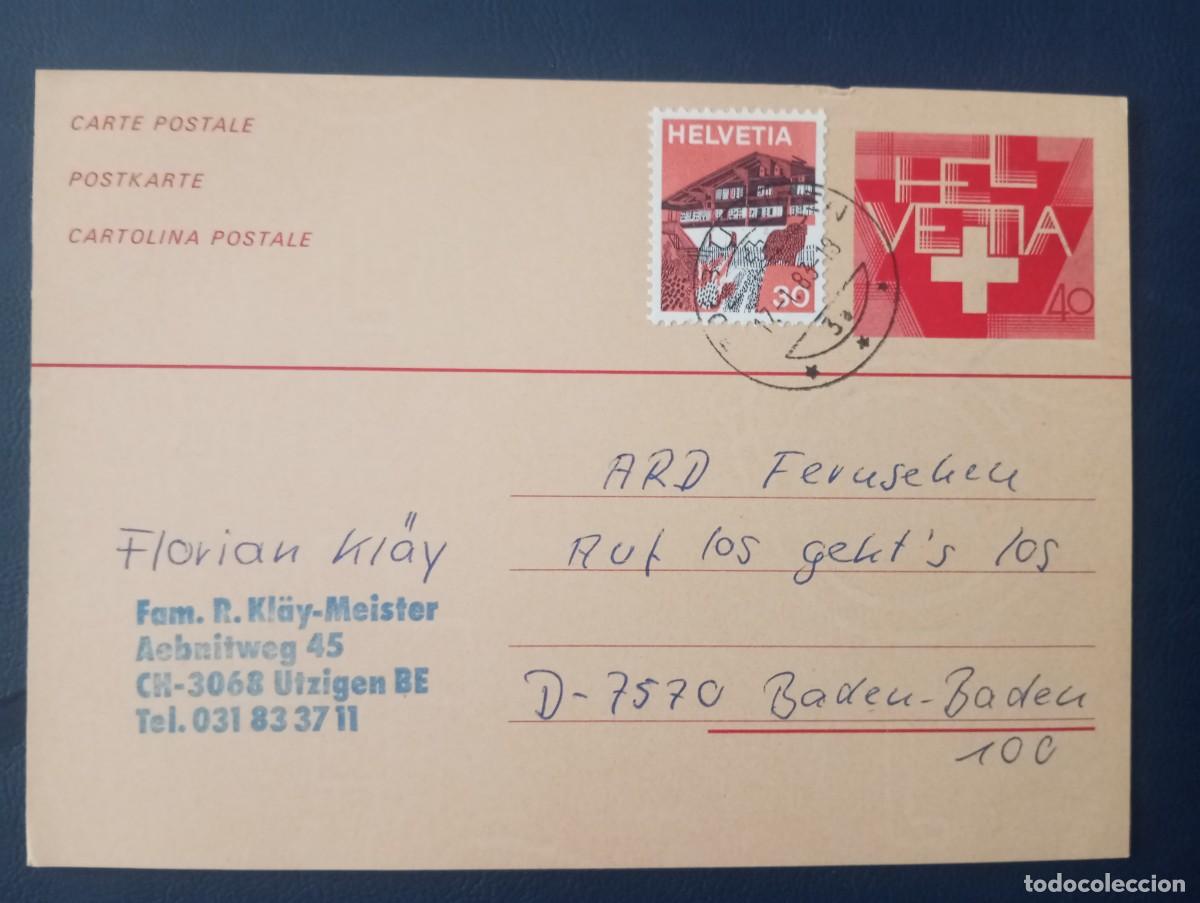 CARTE POSTALE
POSTKARTE
CARTOLINA POSTALE
HELVETIA
30
HEL
VETIA
40
3a
ARD Fernsehen
Auf los geht's los
D-7570 Baden-Baden
100
Florian Kläy
Fam. R. Kläy-Meister
Aebnitweg 45
CH-3068 Utzigen BE
Tel. 031 83 37 11
todocoleccion